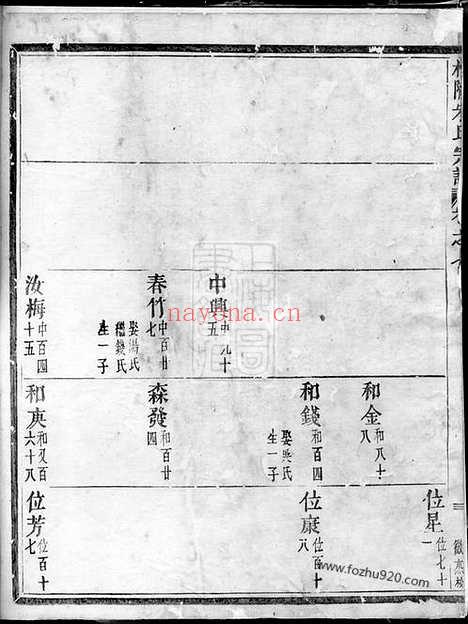 宗譜卷之
位星 位七十一
和金 和八十八
和錢 和百四
娶吳氏
生一子
位康 位百十八
中興 中九十五
春竹 中百廿七
娶湯氏
繼錢氏
生一子
森發 和百廿四
汝梅 中百四十五
和庚 和又百六十八
位芳 位百十七
nayona.cn
www.fozhu920.com